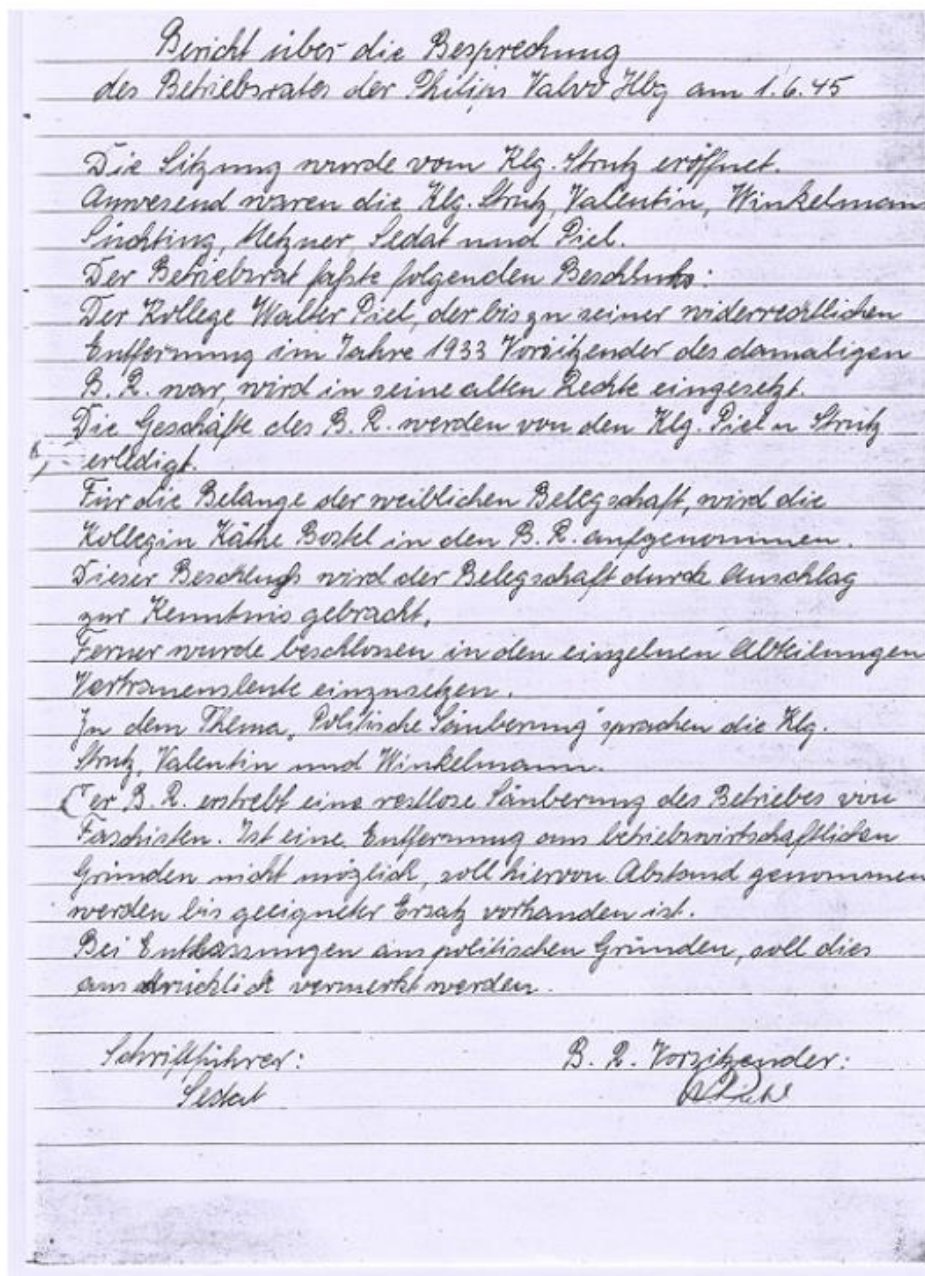 Bericht über die Besprechung
des Betriebsrates der Philips Valvo Hbg am 1.6.45
Die Sitzung wurde vom Klg. Strutz eröffnet.
Anwesend waren die Klg. Strutz, Valentin, Winkelman
Süchting, Metzner, Sedat und Piel.
Der Betriebsrat faßte folgenden Beschluß:
Der Kollege Walter Piel, der bis zu seiner widerrechtlichen
Entfernung im Jahre 1933 Vorsitzender des damaligen
B. R. war, wird in seine alten Rechte eingesetzt.
Die Geschäfte des B. R. werden von den Klg. Piel u Strutz
erledigt.
Für die Belange der weiblichen Belegschaft, wird die
Kollegin Käthe Bostel in den B. R. aufgenommen.
Dieser Beschluß wird der Belegschaft durch Anschlag
zur Kenntnis gebracht.
Ferner wurde beschlossen in den einzelnen Abteilungen
Vertrauensleute einzusetzen.
Zu dem Thema „Politische Säuberung" sprachen die Klg.
Strutz, Valentin und Winkelmann.
Der B. R. erstrebt eine restlose Säuberung des Betriebes von
Faschisten. Ist eine Entfernung aus betriebswirtschaftlichen
Gründen nicht möglich, soll hiervon Abstand genommen
werden bis geeigneter Ersatz vorhanden ist.
Bei Entlassungen aus politischen Gründen, soll dies
ausdrücklich vermerkt werden.
Schriftführer: B. R. Vorsitzender:
Sedat